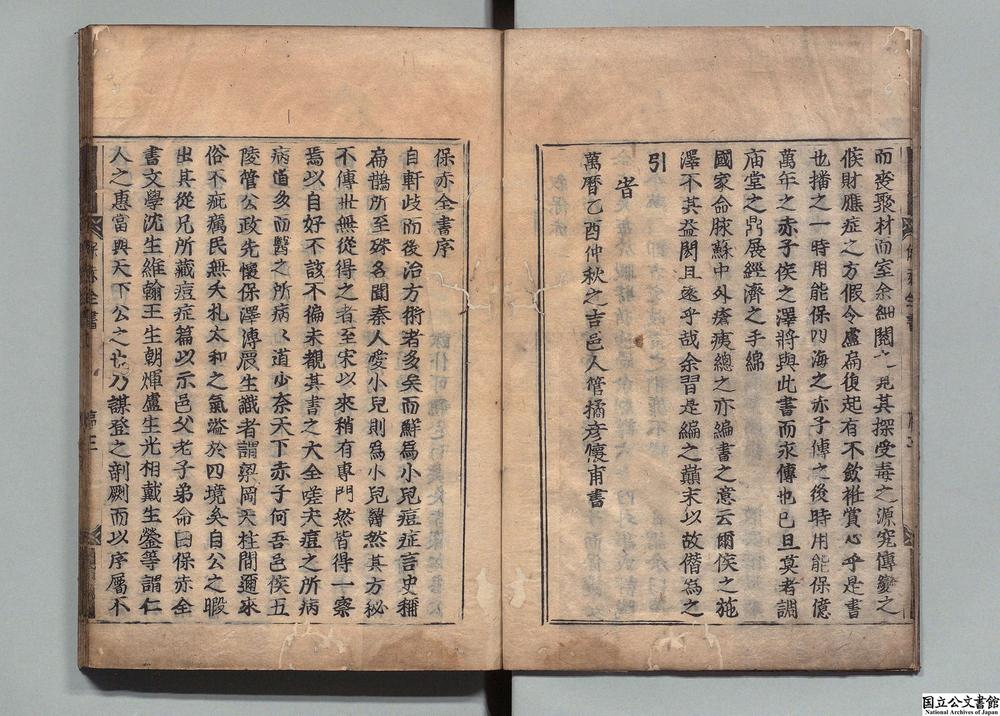 而喪聚材而室余細閱之見其探受毒之源究傳變之
候財應症之方假令盧扁復起有不歛袵賞心乎是書
也播之一時用能保四海之赤子傳之後時用能保億
萬年之赤子侯之澤將與此書而永傳也已旦莫者調
庙堂之鼎展經濟之手綿
國家命脉蘇中外瘡痍總之亦編書之意云爾侯之施
澤不其益閎且遠乎哉余習是編之顛末以故僭為之
引
旹
萬曆乙酉仲秋之吉邑人管橘彦懷甫書
保赤全書序
自軒歧而後治方術者多矣而鮮爲小兒痘症言史稱
扁鵲所至殊名聞秦人愛小兒則爲小兒醫然其方秘
不傳世無從得之者至宋以來稍有專門然皆得一察
焉以自好不該不徧未覩其書之大全嗟夫痘之所病
病道多而醫之所病病道少奈天下赤子何吾邑侯五
陵管公政先懷保澤溥震生識者謂梁岡天柱間邇來
俗不疵癘民無夭札太和之氣溢於四境矣自公之暇
出其從兄所藏痘症篇以示邑父老子弟命曰保赤全
書文學沈生維翰王生朝煇盧生光相戴生鎣等謂仁
人之惠當與天下公之也乃謀登之剞劂而以序屬不
保赤全書
序
国立公文書館
National Archives of Japan